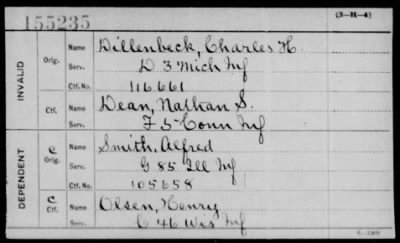 155235
(3—H—4)
INVALID
Orig.
Name Dillenbeck, Charles H.
Serv. D 3 Mich Inf
Ctf. No. 116661
Ctf.
Name Dean, Nathan S.
Serv. F 5 Conn Inf
DEPENDENT
C
Orig.
Name Smith, Alfred
Serv. G 85 Ill Inf
Ctf. No. 105658
C
Ctf.
Name Olsen, Henry
Serv. C 46 Wis Inf